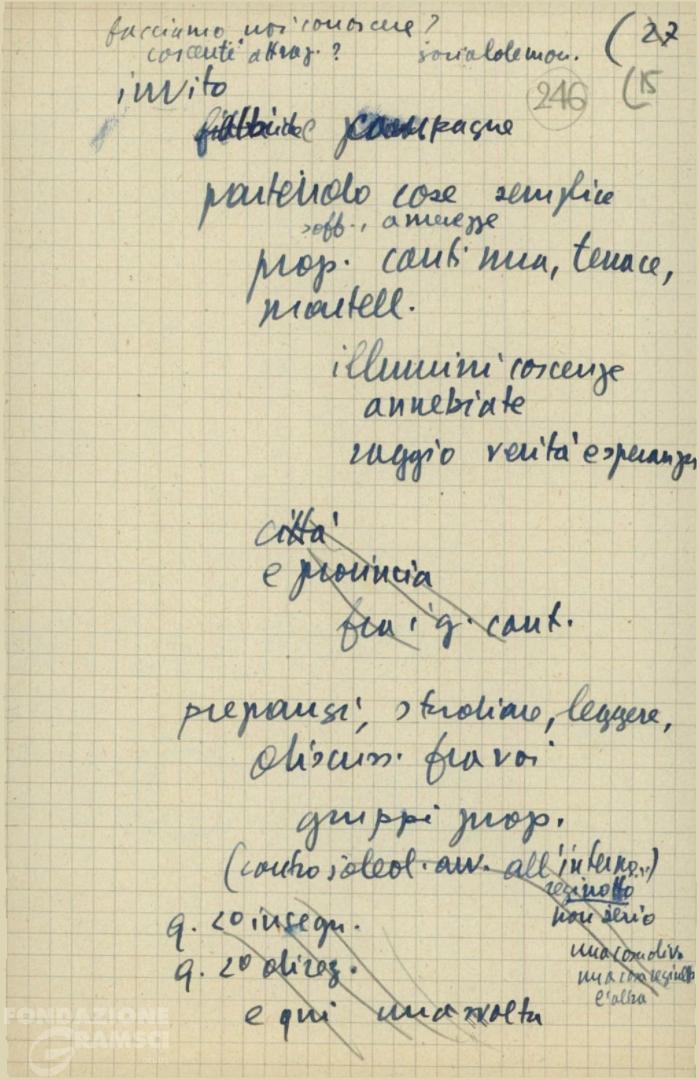 facciamo noi conoscere?
coscente attrav.? socialdemon. (27
invito 246 (15
fabbriche campagne
partendo cose semplice
soff., amarezze
prop. continua, tenace,
martell.
illumini coscenze
annebiate
raggio verità e speranza
città
e provincia
fra i g. cont.
preparasi, studiare, leggere,
discuss. fra voi
gruppi prop.
(contro ideol. avv. all'interno..)
reginotto
non serio
q. 20 insegn.
q. 20 direz.
una cosa diva
una cosa reginotto
e l'altra
e qui una svolta
FONDAZIONE
GRAMSCI